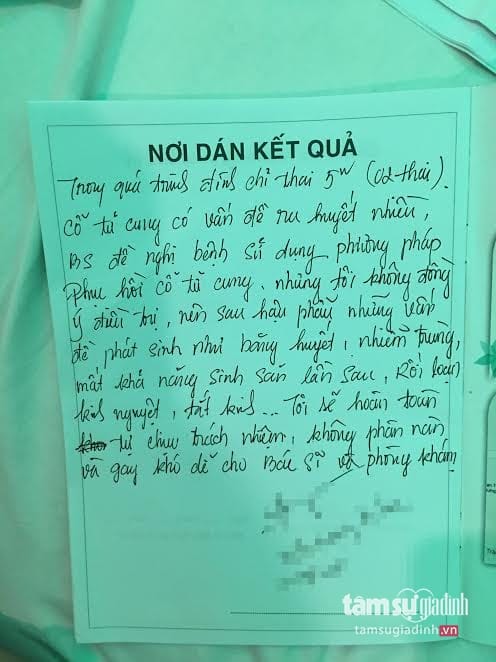 NƠI DÁN KẾT QUẢ
Trong quá trình đình chỉ thai 5w (02 thai).
cổ tử cung có vấn đề ra huyết nhiều,
BS đề nghị bệnh sử dụng phương pháp
phục hồi cổ tử cung. nhưng tôi không đồng
ý điều trị, nên sau hậu phẫu những vấn
đề phát sinh như băng huyết, nhiễm trùng,
mất khả năng sinh sản lần sau, Rối loạn
kinh nguyệt, tắt kinh... Tôi sẽ hoàn toàn
tự chịu trách nhiệm, không phàn nàn
và gây khó dễ cho Bác sĩ và phòng khám
tâmsựgiađình
tamsugiadinh.vn